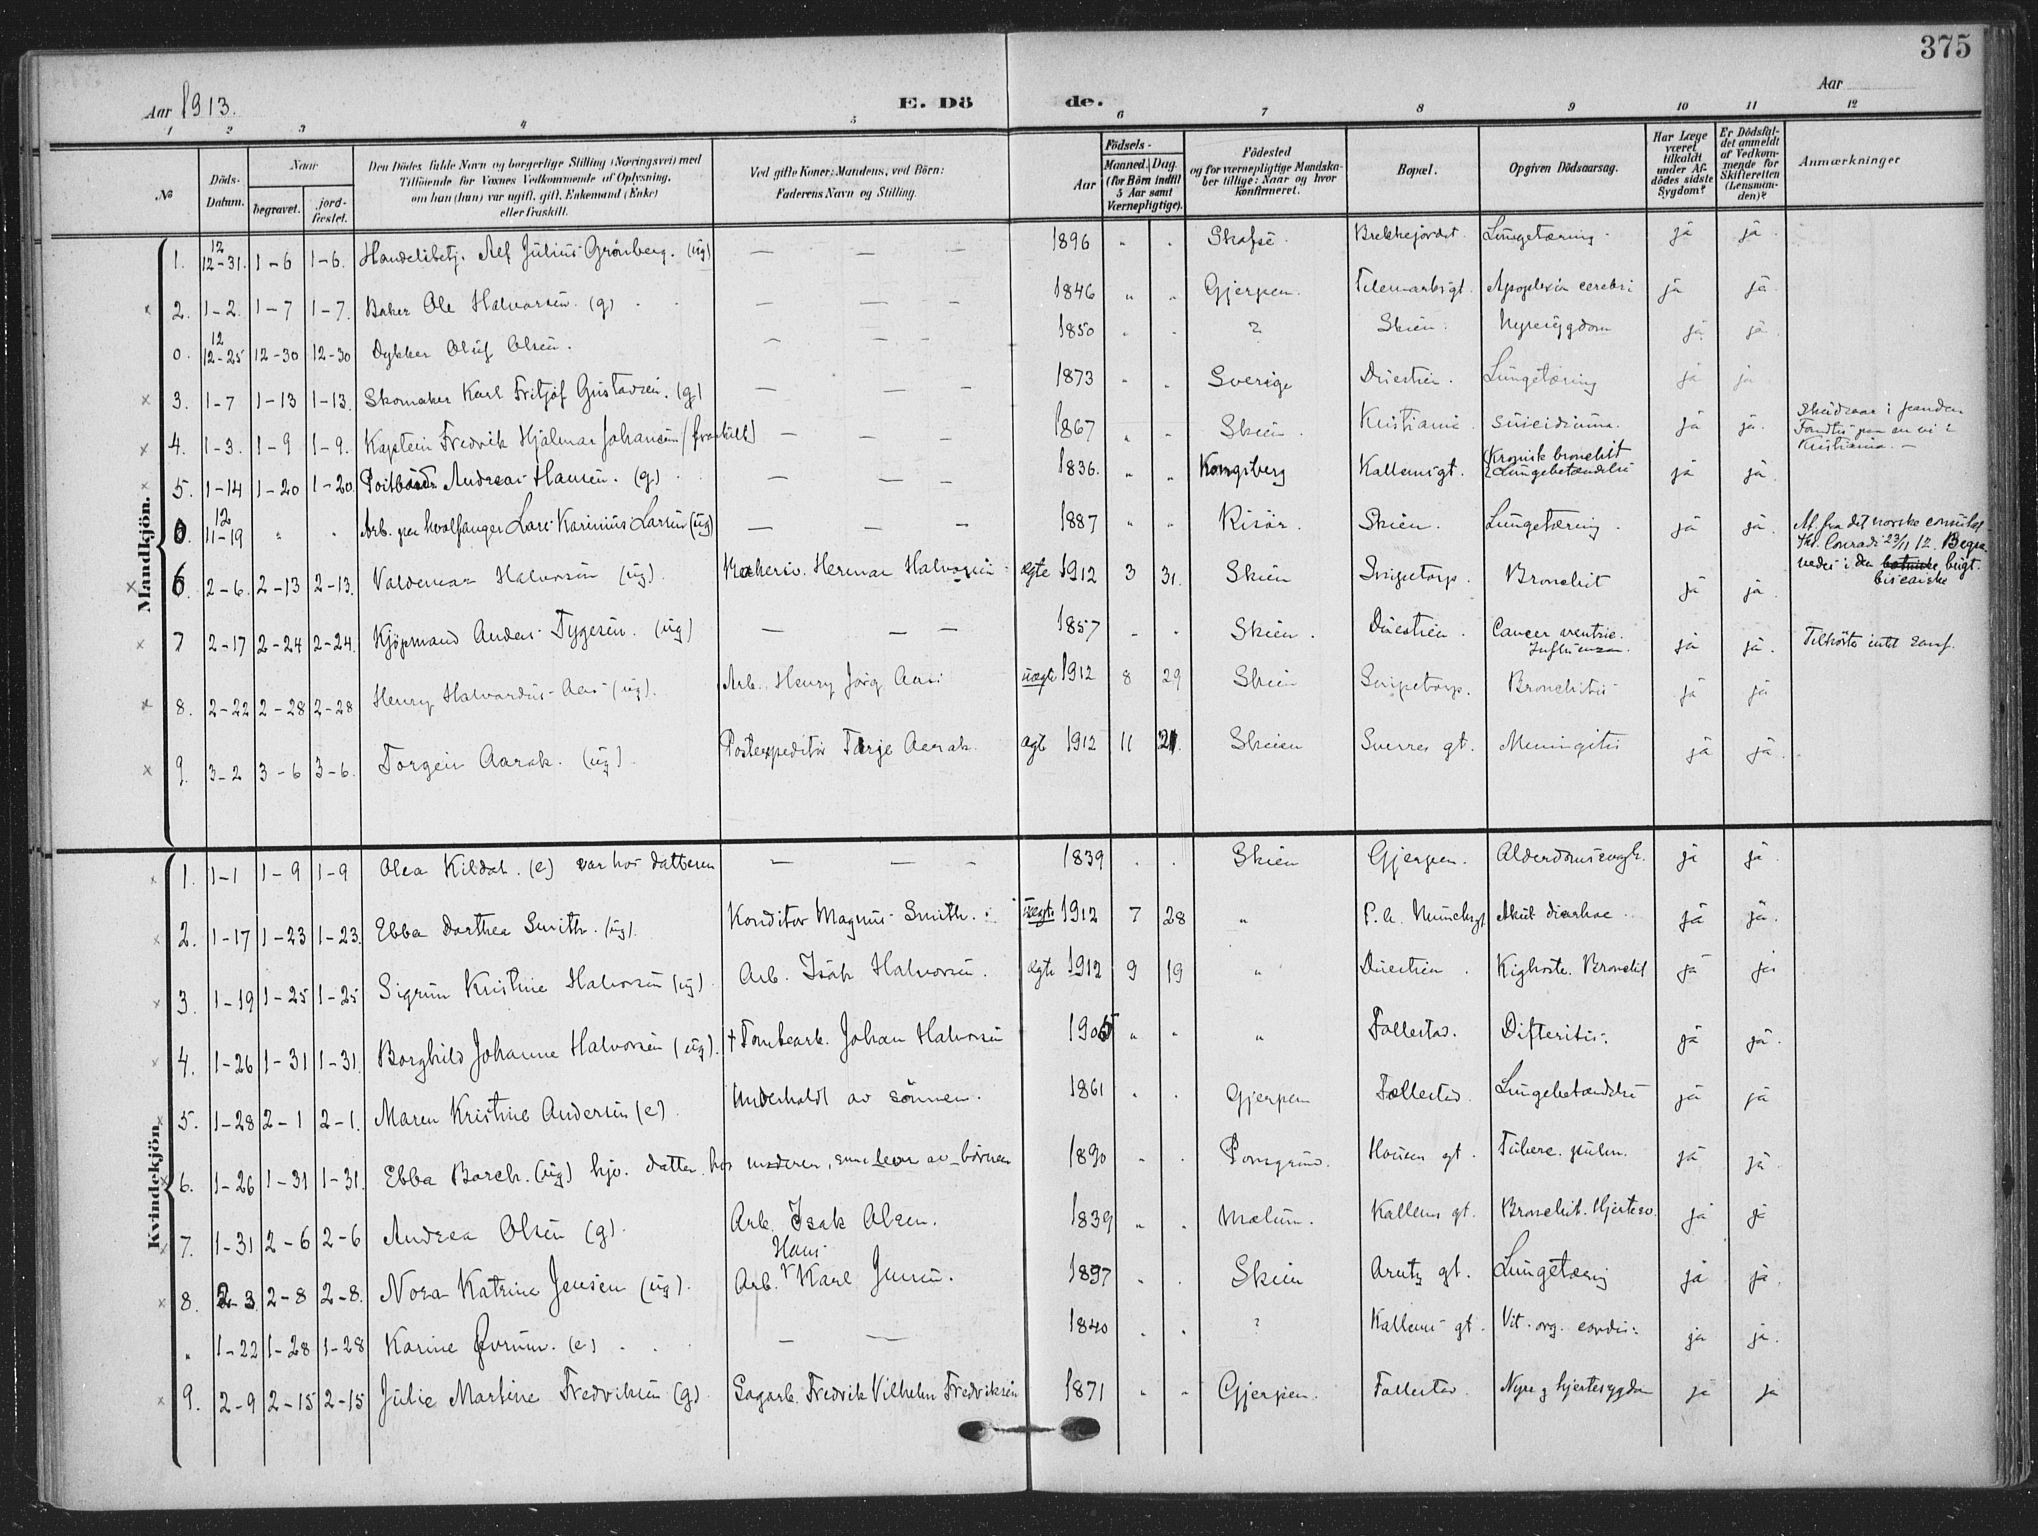 375
Aar 1913.
E. Döde.
Aar
1 2 3 4 5 6 7 8 9 10 11 12
No
Döds-Datum.
Naar
begravet.
jord-fæstet.
Den Dödes fulde Navn og borgerlige Stilling (Næringsvei) med
Tilföiende for Voxnes Vedkommende af Oplysning,
om han (hun) var ugift, gift, Enkemand (Enke)
eller fraskilt.
Ved gifte Koner: Mandens, ved Börn:
Faderens Navn og Stilling.
Födsels-
Aar
Maaned. Dag.
(for Börn indtil
5 Aar samt
Værnepligtige).
Födested
og for værnepligtige Mandska-
ber tillige: Naar og hvor
konfirmeret.
Bopæl.
Opgiven Dödsaarsag.
Har Læge
været
tilkaldt
under Af-
dödes sidste
Sygdom?
Er Dödsfal-
det anmeldt
af Vedkom-
mende for
Skifteretten
(Lensman-
den)?
Anmærkninger
Mandkjön.
1. 12 12-31. 1-6 1-6. Handelsbetj. Alf Julius Grönberg. (ug) — — — 1896 " . Skafse. Brekkejordet. Lungetæring. ja ja.
2. 1-2. 1-7 1-7. Baker Ole Halvorsen. (g) — — — 1846 " " Gjerpen. Telemarksgt. Apoplexia cerebri ja ja.
0. 12 12-25 12-30 12-30 Dykker Oluf Olsen. — — — 1850 " . ? Skien. Nyresygdom ja ja
3. 1-7 1-13 1-13. Skomaker Karl Fritjof Gustavsen. (g) — — — 1873 " " Sverige Duestien. Lungetæring ja ja
4. 1-3. 1-9 1-9. Kaptein Fredrik Hjalmar Johansen (fraskilt) — — 1867 " " Skien. Kristiania suicidium. ja ja. Skudsaar i panden
Kristiania. —
5. 1-14 1-20 1-20. Andreas Hansen. (g) — — — 1836. " " Kongsberg Kallemsgt. Kronisk bronchit
Lungebetændelse ja ja.
0. 12 11-19 " . Arb. paa hvalfanger Lars Karinius Larsen (ug) — — — 1887 " " Risör. Skien. Lungetæring. ja ja. At. fra det norske consulat
6. 2-6. 2-13 2-13. Valdemar Halvorsen (ug). Herman Halvorsen ægte 1912 3 31. Skien Snipetorp. Bronchit ja ja.
7 2-17 2-24 2-24. Kjöpmand Anders Tygesen. (ug) — — — 1857 " . Skien. Duestien. Cancer ventric.
Influenza. ja ja. Tilhörte intet samf.
8. 2-22 2-28 2-28 Henry Halvardus Aas (ug). Arb. Henry Jörg. Aas. uægte 1912 8 29 Skien Snipetorp. Bronchitis ja ja
9. 3-2 3-6 3-6. Torgeir Aarak. (ug). Postexpeditör Tarje Aarak. ægte 1912 11 21. Skien Sverres gt. Meningitis ja ja.
Kvindekjön.
1. 1-1 1-9 1-9 Olea Kildal. (e) var hos datteren — — — 1839 . . Skien Gjerpen. Alderdomssvagh. ja ja.
2. 1-17 1-23 1-23. Ebba Dorthea Smith. (ug). Konditor Magnus Smith. uægte 1912 7 28 " P. A. Munchsgt. Akut diarhoe. ja ja.
3. 1-19 1-25 1-25 Sigrun Kristine Halvorsen (ug). Arb. Isak Halvorsen. ægte 1912 9 19 " Duestien. Kighoste. Bronchit ja ja
4. 1-26 1-31 1-31. Borghild Johanne Halvorsen (ug). † Tomtearb. Johan Halvorsen 1905 " " " Follestad. Difteritis. ja ja.
5. 1-28 2-1 2-1. Maren Kristine Andersen (e). Underholdt av sönnen. 1861 " . Gjerpen Follestad. Lungebetændelse ja ja
6. 1-26 1-31 1-31. Ebba Borch. (ug) hjv. datter hos moderen, som lever av börnene 1890 " . Porsgrund. Housens gt. Tuberc. pulm. ja ja.
7. 1-31 2-6 2-6 Andrea Olsen (g). Arb. Isak Olsen. 1839 " . Mælum. Kallems gt. Bronchit. Hjertesv. ja ja
8. 2-3 2-8 2-8. Nora Katrine Jensen (ug). Arb. Hans Karl Jensen. 1897 " . Skien Arentz gt. Lungetæring ja ja.
" 1-22 1-28 1-28 Karine Øvrum. (e) — — 1840 . . ? Kallems gt. Vit. org. cordis. ja ja.
9. 2-9 2-15 2-15 Julie Martine Fredriksen (g). Sagarb. Fredrik Vilhelm Fredriksen 1871 " " Gjerpen. Follestad. Nyre & hjertesygdom ja ja